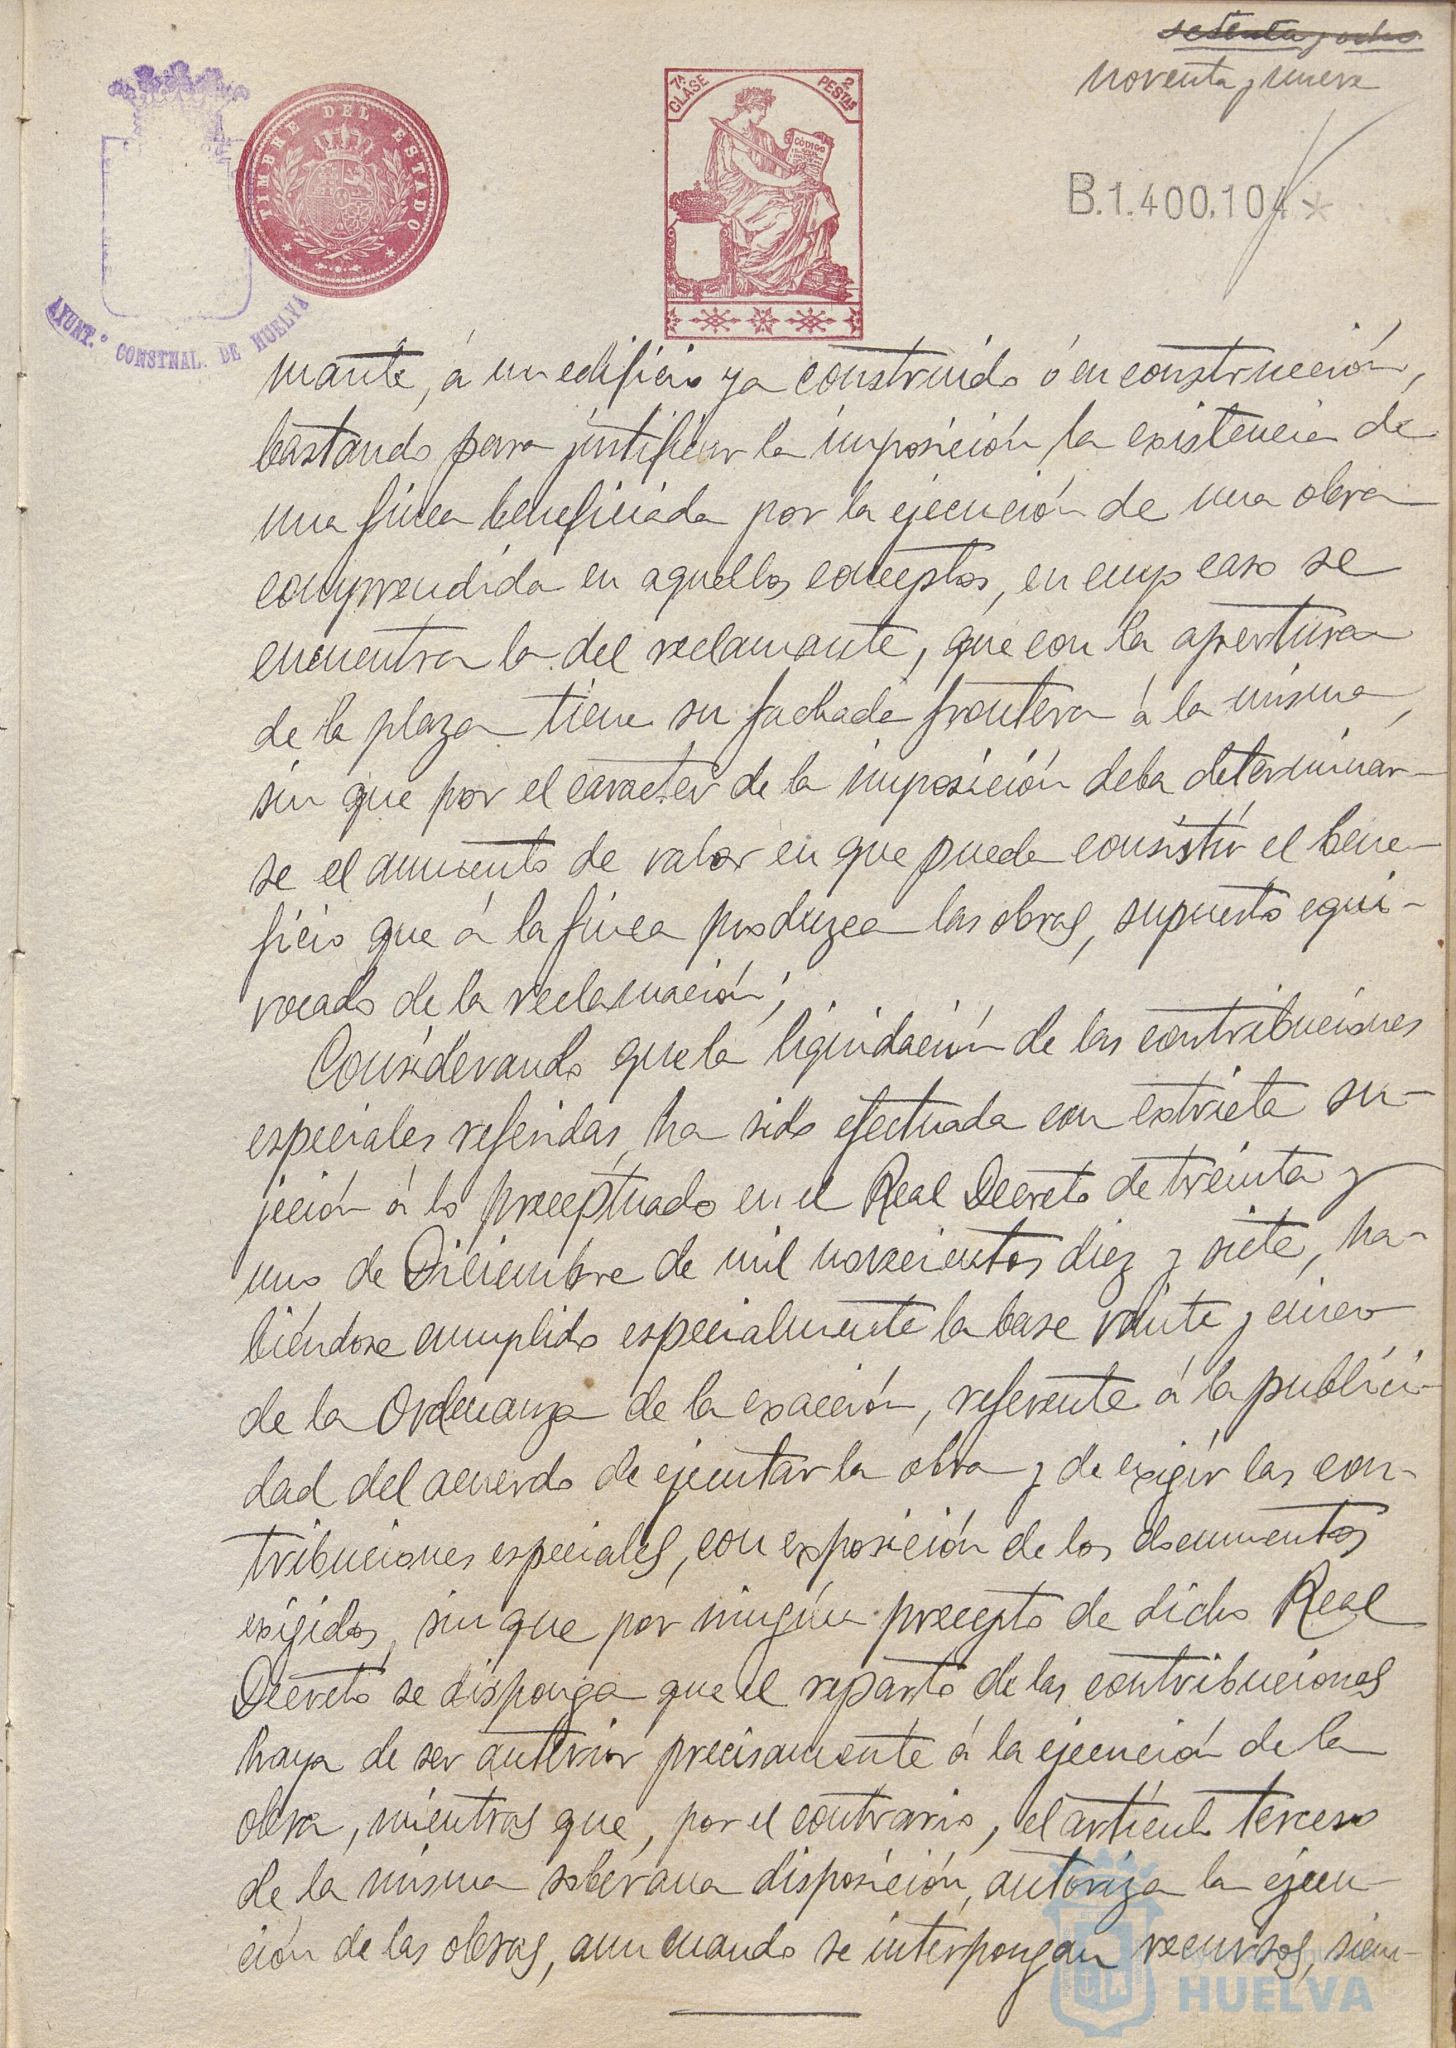 setenta y ocho
noventa y nueve
7ª CLASE
2 PESTAS
CÓDIGO
TIMBRE DEL ESTADO
B.1.400.104*
AYUNT.º CONSTNAL. DE HUELVA
mante, á un edificio ya construido ó en construcción,
bastando para justificar la imposición, la existencia de
una finca beneficiada por la ejecución de una obra
comprendida en aquellos conceptos, en cuyo caso se
encuentra la del reclamante, que con la apertura
de la plaza tiene su fachada frontera á la misma,
sin que por el caracter de la imposición deba determinar-
se el aumento de valor en que puede consistir el bene-
ficio que á la finca produzca las obras, supuesto equi-
vocado de la reclamación;
Considerando que la liquidación de las contribuciones
especiales referidas, ha sido efectuada con extricta su-
jeción á lo preceptuado en el Real Decreto de treinta y
uno de Diciembre de mil novecientos diez y siete, ha-
biéndose cumplido especialmente la base veinte y cinco
de la Ordenanza de la exacción, referente á la publici-
dad del acuerdo de ejecutar la obra y de exigir las con-
tribuciones especiales, con exposición de los documentos
exigidos, sin que por ningún precepto de dicho Real
Decreto se disponga que el reparto de las contribuciones
haya de ser anterior precisamente á la ejecución de la
obra, mientras que, por el contrario, el artículo tercero
de la misma soberana disposición, autoriza la ejecu-
ción de las obras, aun cuando se interpongan recursos, siem-
HUELVA